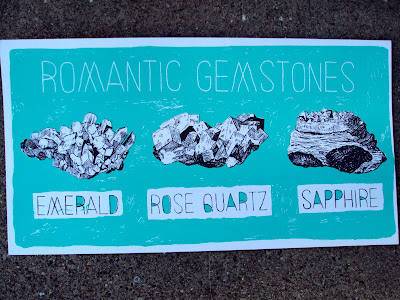 ROMANTIC GEMSTONES
EMERALD ROSE QUARTZ SAPPHIRE